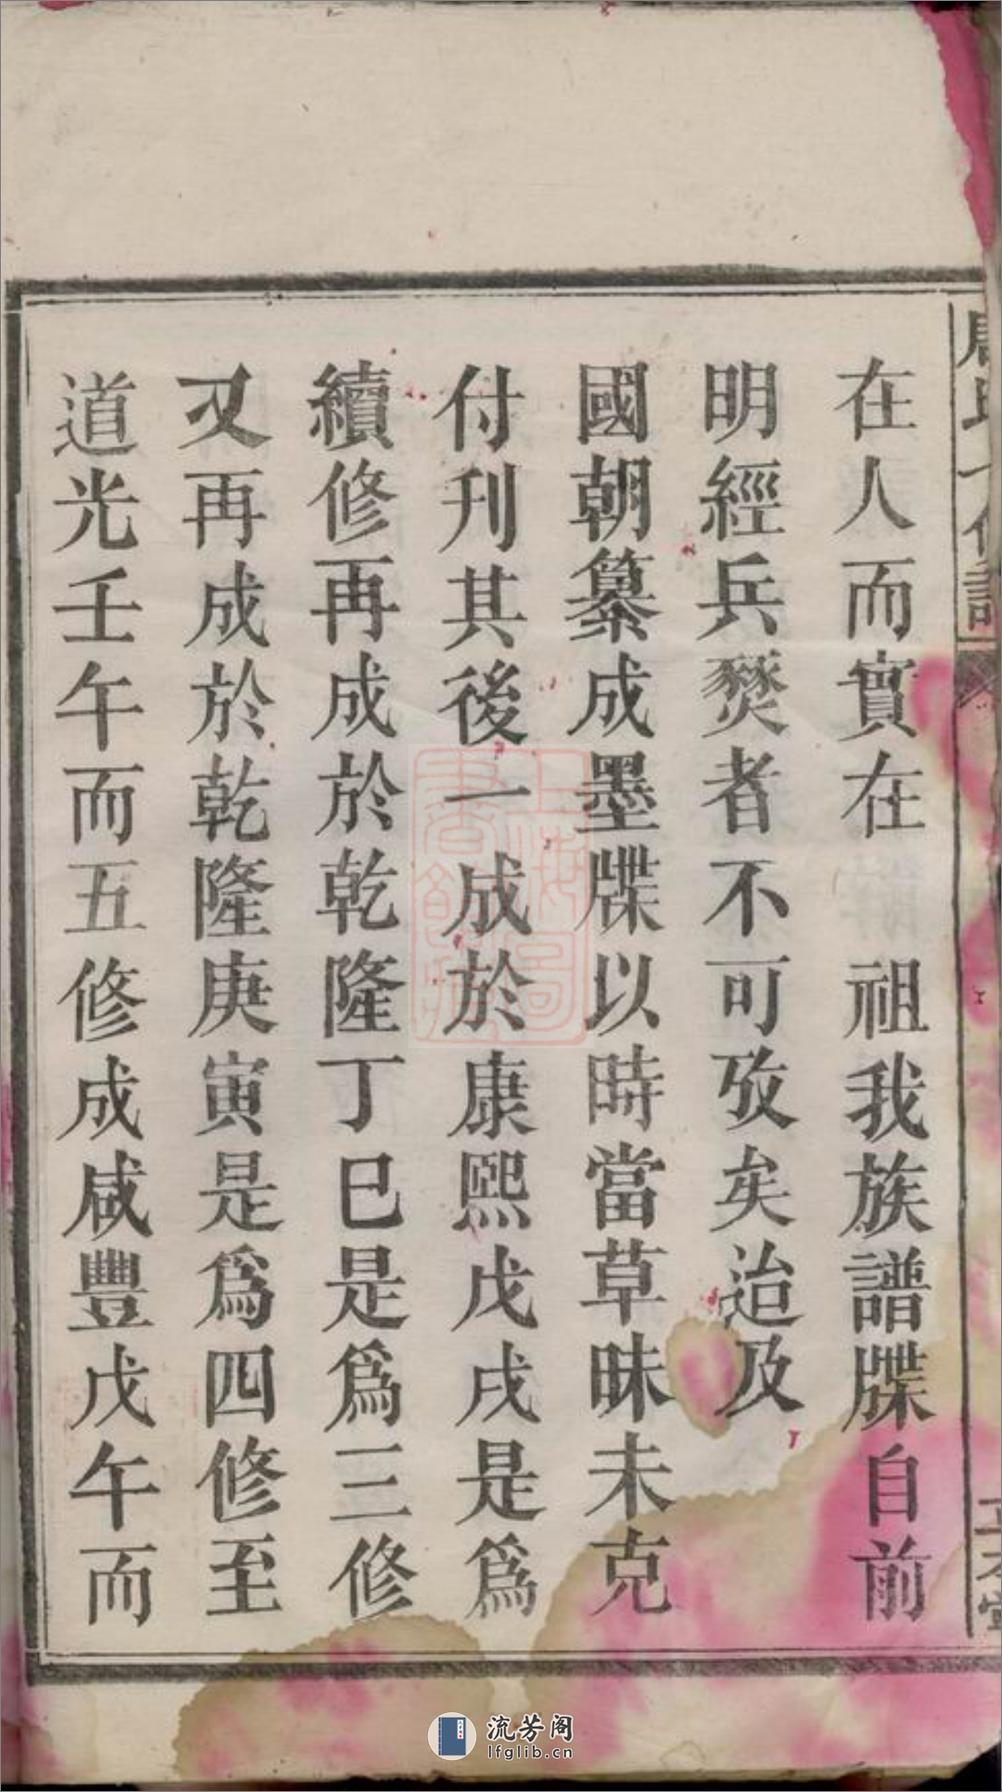 在人而實在　祖我族譜牒自前
明經兵燹者不可攷矣迨及
國朝纂成墨牒以時當草昧未克
付刊其後一成於康熙戊戌是爲
續修再成於乾隆丁巳是爲三修
又再成於乾隆庚寅是爲四修至
道光壬午而五修成咸豐戊午而
上海圖書館藏
流芳阁
lfglib.cn